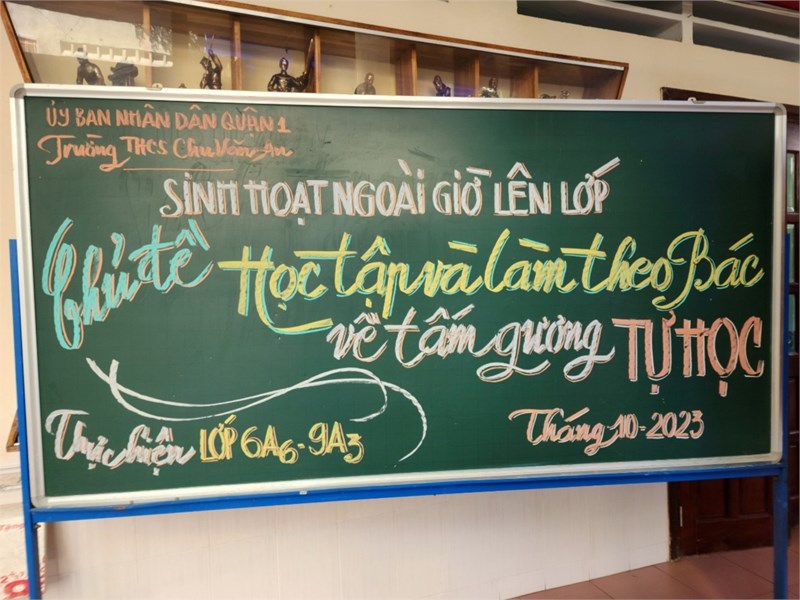 ỦY BAN NHÂN DÂN QUẬN 1
Trường THCS Chu Văn An
SINH HOẠT NGOÀI GIỜ LÊN LỚP
Chủ đề Học tập và làm theo Bác
về tấm gương TỰ HỌC
Thực hiện LỚP 6A6 - 9A3
Tháng 10-2023